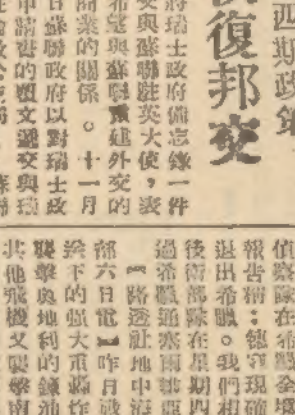 四期政
復邦交
府瑞士政府備忘錄一件
交與蘇聯駐英大使，表
希望與蘇聯重建外交的
商業的關係。十一月
日蘇聯政府以對瑞士政
申請書的覆文遞交與瑞
偵察隊在希臘全境
報告稱：德寇現確
退出希臘。我們相
後衛部隊在星期四
過希臘通塞爾維亞
【路透社地中海
部六日電】昨月
投下的強大重轟炸
襲擊奧地利的鍊油
其他飛機又襲擊南